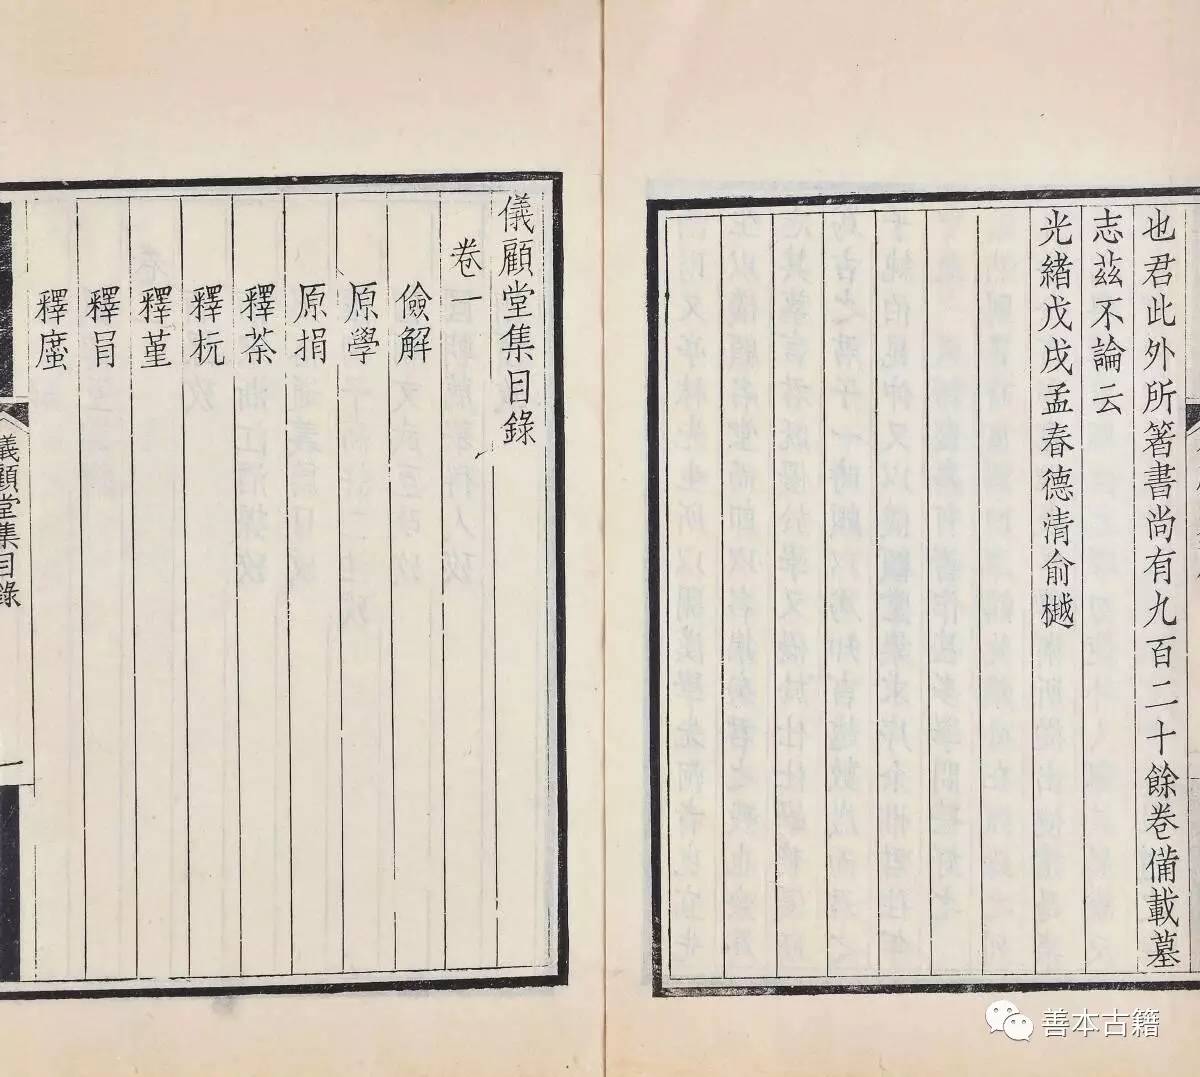 也君此外所箸書尚有九百二十餘卷備載墓
志茲不論云
光緒戊戌孟春德清俞樾
儀顧堂集目錄
卷一
儉解
原學
原捐
釋茶
釋杬
釋堇
釋䏍
釋蜑
儀顧堂集目錄
一
善本古籍